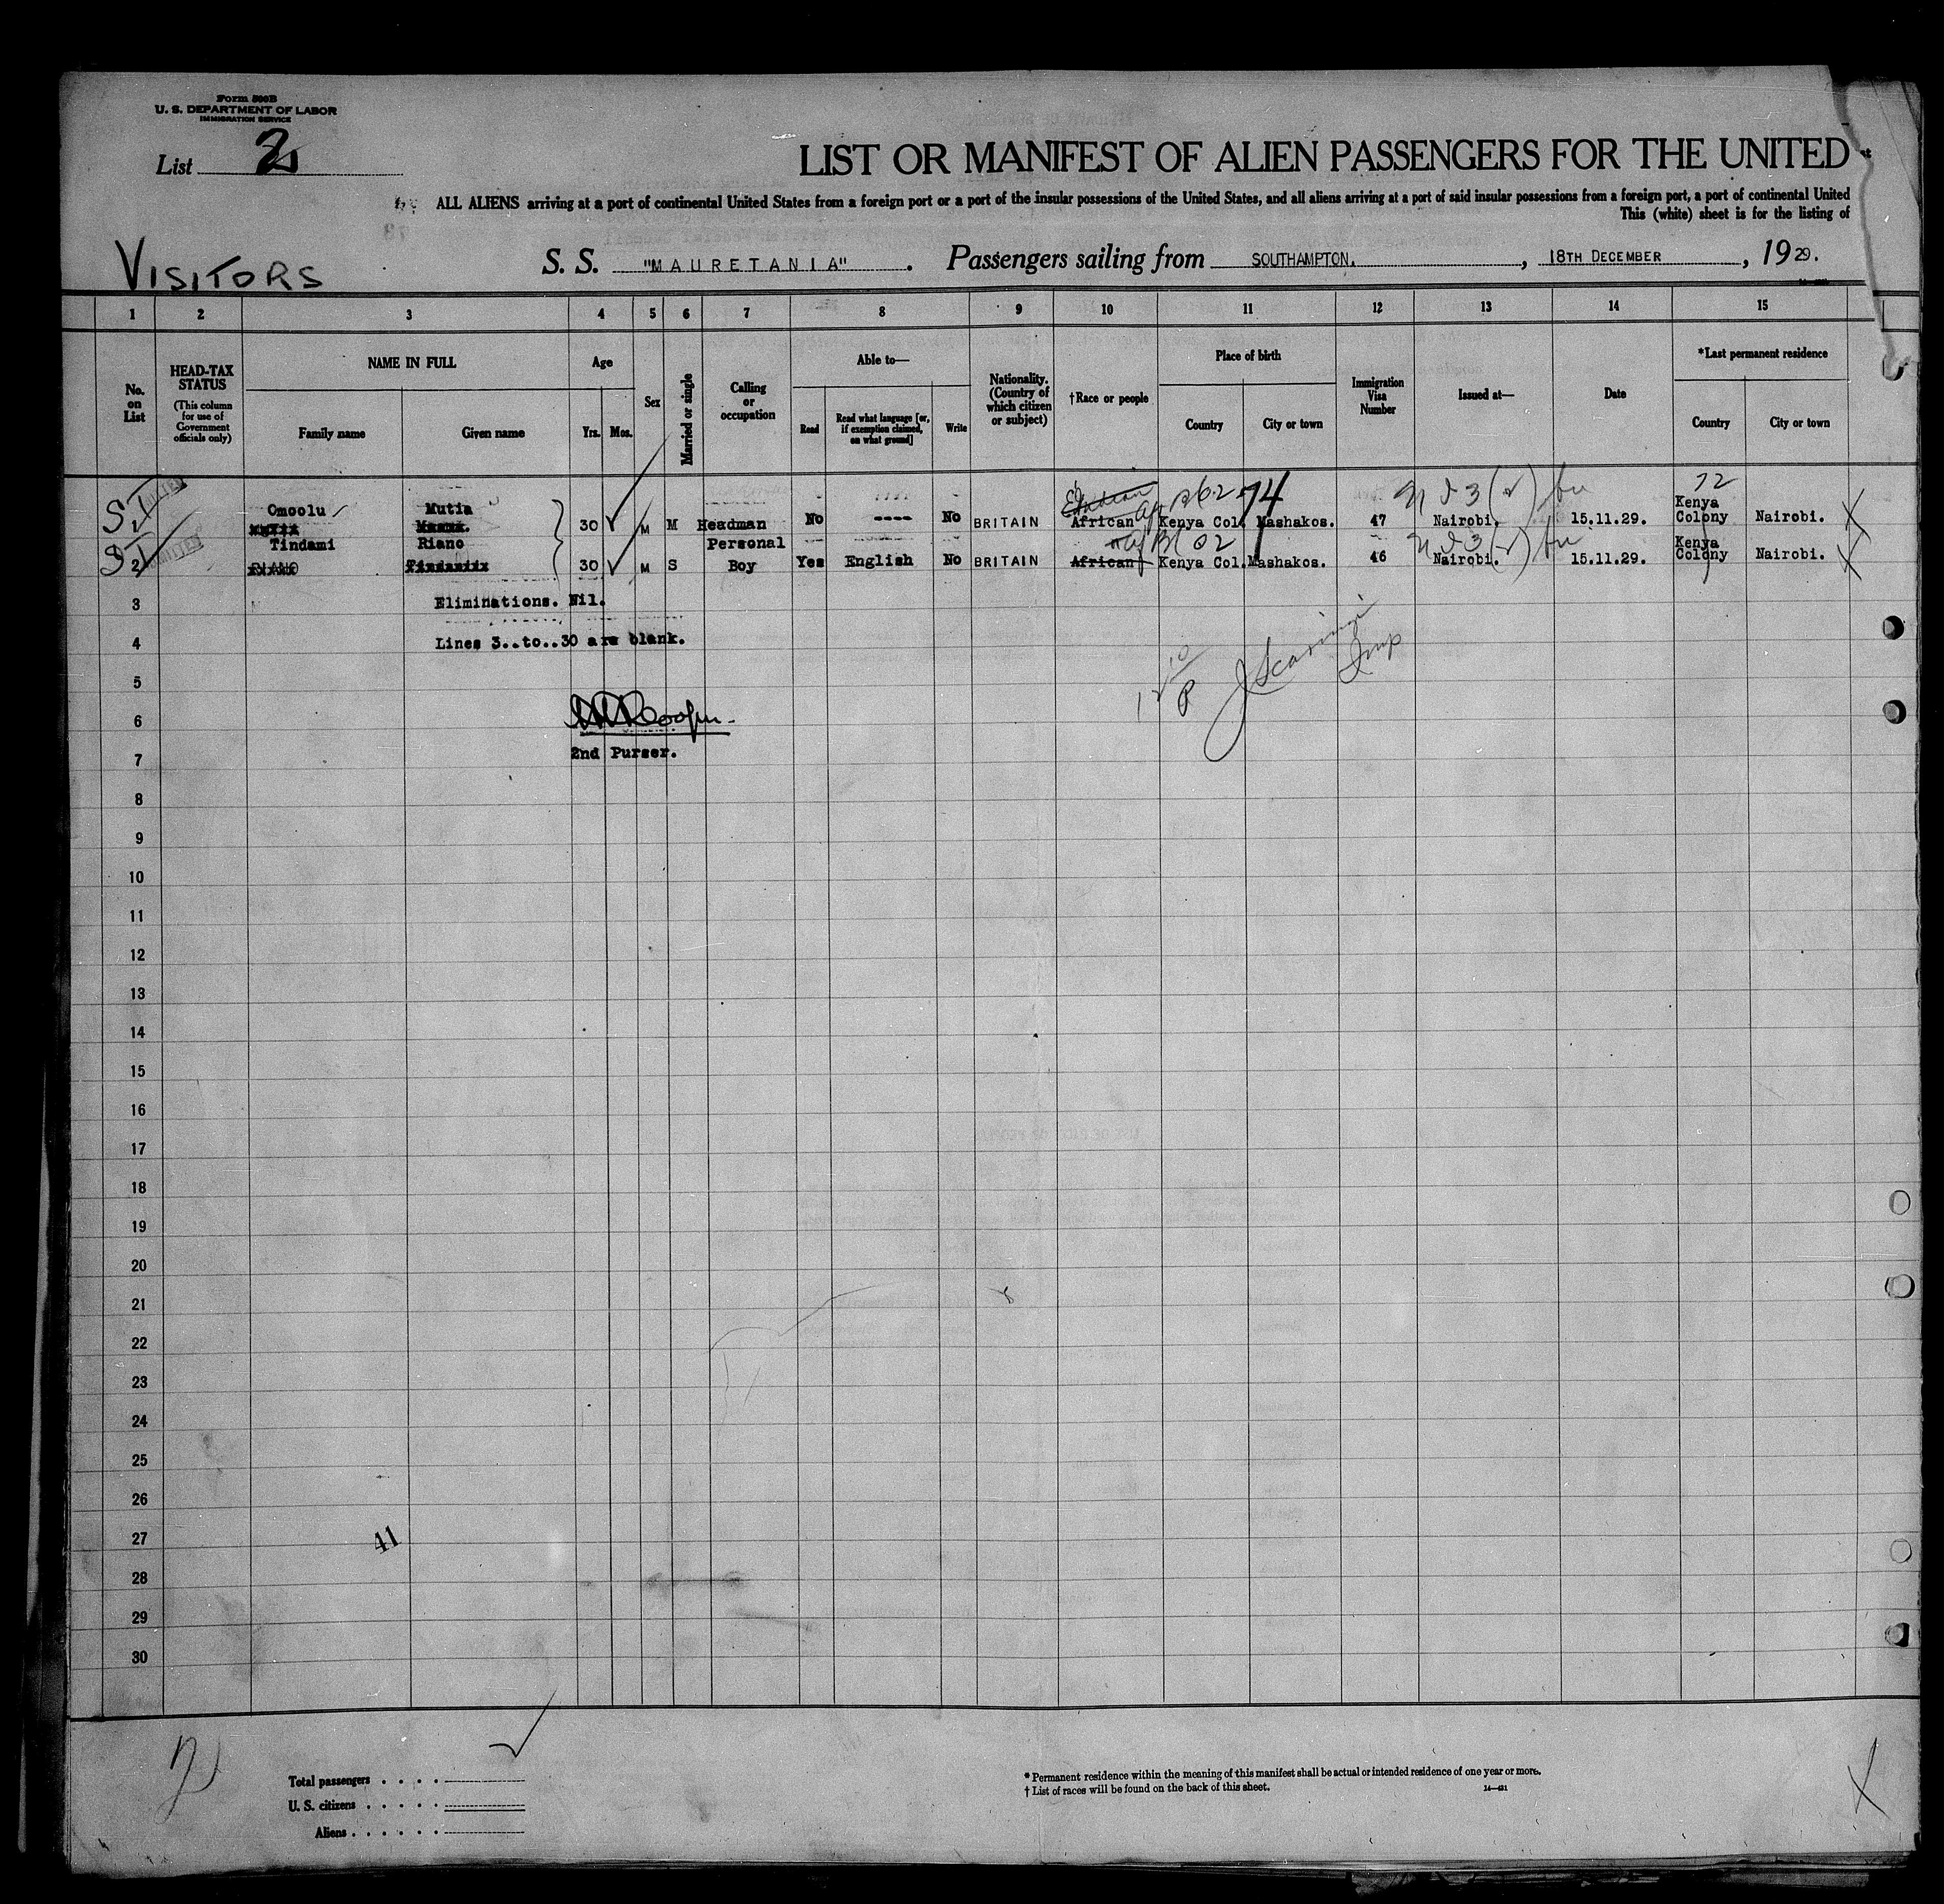 Form 500B
U. S. DEPARTMENT OF LABOR
IMMIGRATION SERVICE
List 2
LIST OR MANIFEST OF ALIEN PASSENGERS FOR THE UNITED
ALL ALIENS arriving at a port of continental United States from a foreign port or a port of the insular possessions of the United States, and all aliens arriving at a port of said insular possessions from a foreign port, a port of continental United
This (white) sheet is for the listing of
VISITORS
S. S. "MAURETANIA". Passengers sailing from SOUTHAMPTON. , 18TH DECEMBER , 1929.
1 2 3 4 5 6 7 8 9 10 11 12 13 14 15
No. on List
HEAD-TAX STATUS
(This column for use of Government officials only)
NAME IN FULL
Family name Given name
Age
Yrs. Mos.
Sex
Married or single
Calling or occupation
Able to—
Read
Read what language [or, if exemption claimed, on what ground]
Write
Nationality. (Country of which citizen or subject)
†Race or people
Place of birth
Country City or town
Immigration Visa Number
Issued at—
Date
*Last permanent residence
Country City or town
Omoolu Mutia 30 M M Headman No ---- No BRITAIN African Kenya Col. Mashakos. 47 Nairobi. 15.11.29. Kenya Colony Nairobi.
74
72
2 Tindami Riano 30 M S Personal Boy Yes English No BRITAIN African Kenya Col. Mashakos. 46 Nairobi. 15.11.29. Kenya Colony Nairobi.
3 Eliminations. Nil.
4 Lines 3..to..30 are blank.
5
6
7 2nd Purser.
8
9
10
11
12
13
14
15
16
17
18
19
20
21
22
23
24
25
26
27
41
28
29
30
Total passengers . . . .
U. S. citizens . . . . .
Aliens . . . . . .
* Permanent residence within the meaning of this manifest shall be actual or intended residence of one year or more.
† List of races will be found on the back of this sheet.